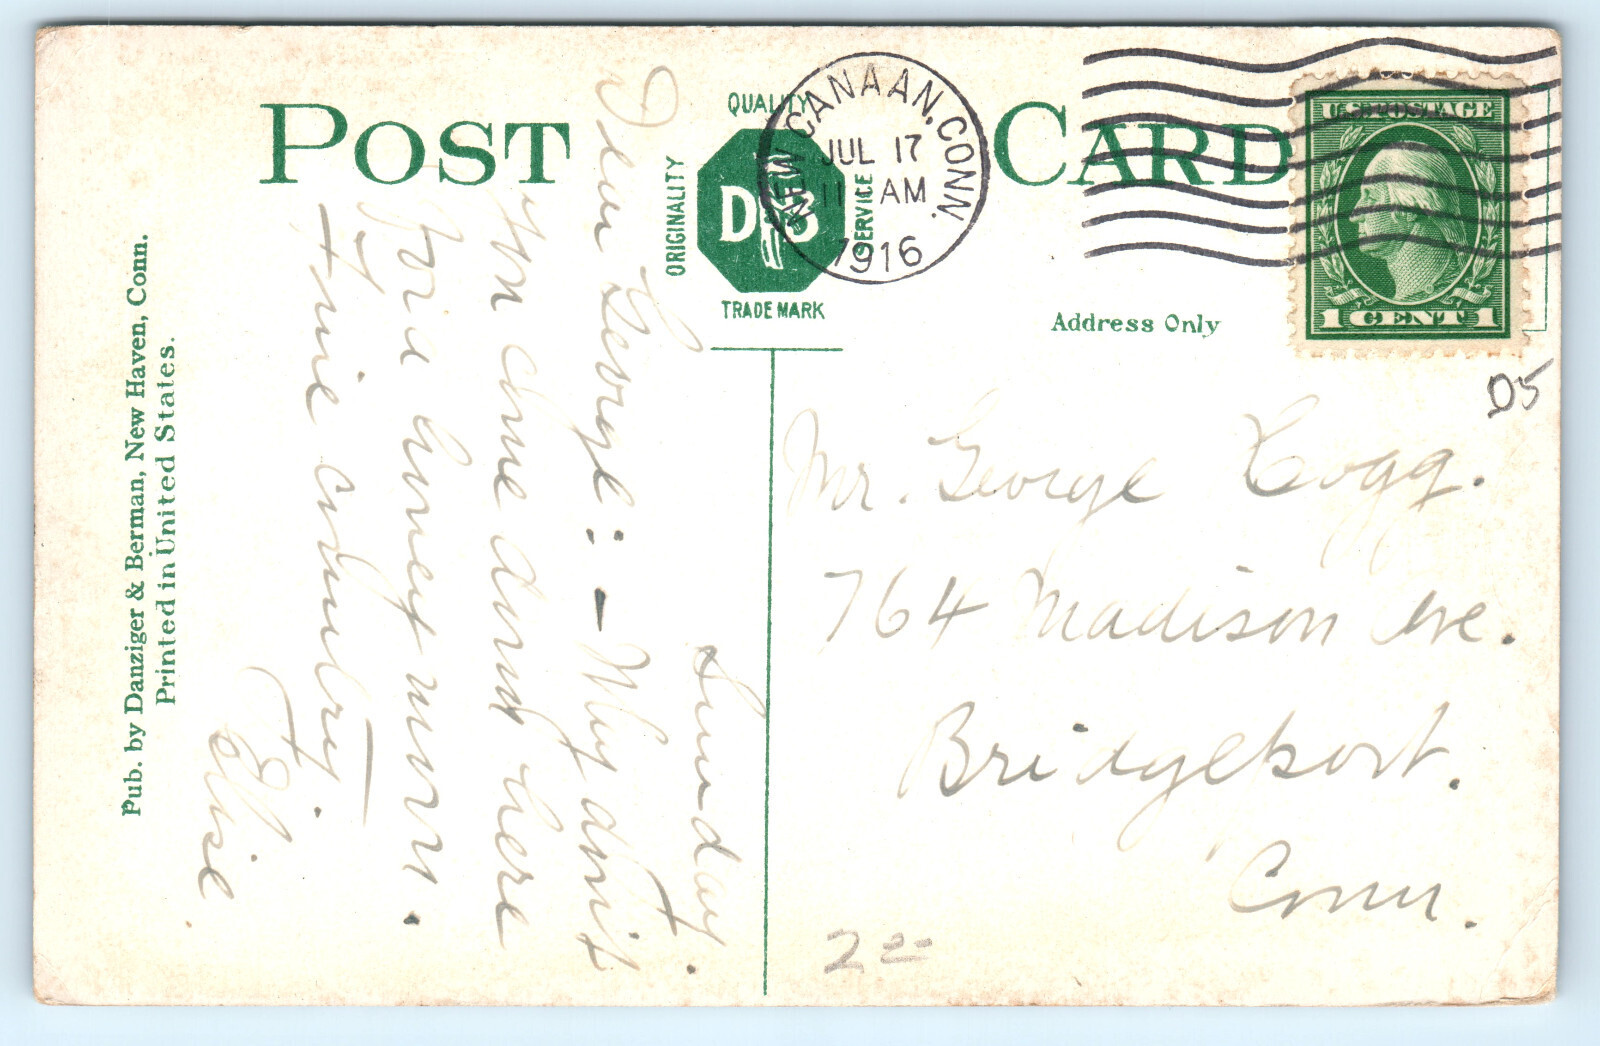 POST CARD
QUALITY
ORIGINALITY
SERVICE
D & B
TRADE MARK
NEW CANAAN, CONN.
JUL 17
11 AM
1916
U.S. POSTAGE
1 CENT 1
Address Only
D5
Pub. by Danziger & Berman, New Haven, Conn.
Printed in United States.
Sunday.
Dear George: – Why don't
you come down here
for a honeymoon.
Fine country.
Elsie
Mr. George Cogg.
764 Madison Ave.
Bridgeport.
Conn.
2 00